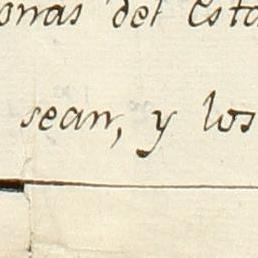 onas del Esta
sean, y los